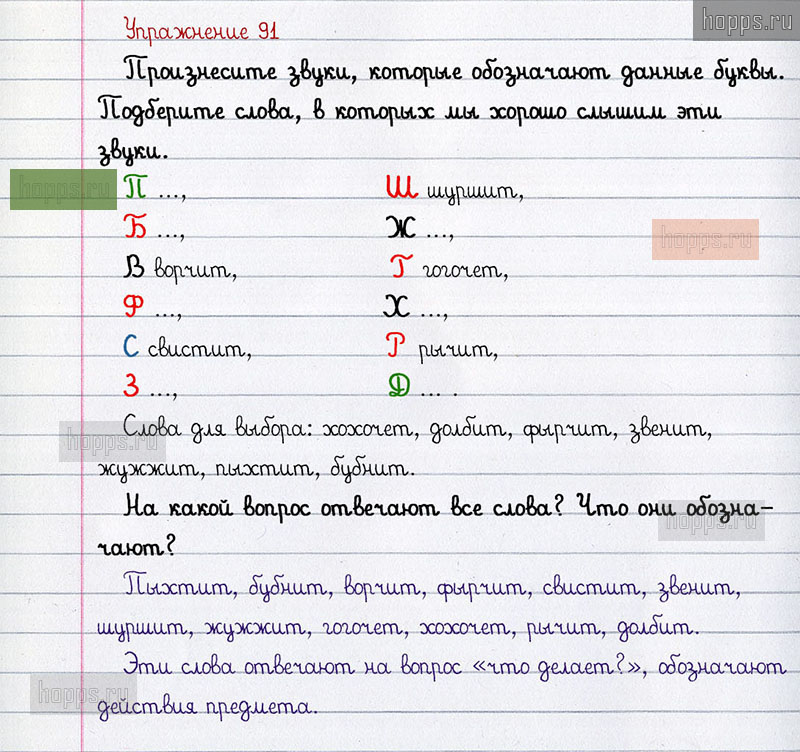 hopps.ru
Упражнение 91
Произнесите звуки, которые обозначают данные буквы.
Подберите слова, в которых мы хорошо слышим эти
звуки.
hopps.ru
П ..., Ш шуршит,
Б ..., Ж ...,
hopps.ru
В ворчит, Г гогочет,
Ф ..., Х ...,
С свистит, Р рычит,
З ..., Д ... .
Слова для выбора: хохочет, долбит, фырчит, звенит,
hopps.ru
жужжит, пыхтит, бубнит.
На какой вопрос отвечают все слова? Что они обозна-
hopps.ru
чают?
Пыхтит, бубнит, ворчит, фырчит, свистит, звенит,
шуршит, жужжит, гогочет, хохочет, рычит, долбит.
Эти слова отвечают на вопрос «что делает?», обозначают
hopps.ru
действия предмета.